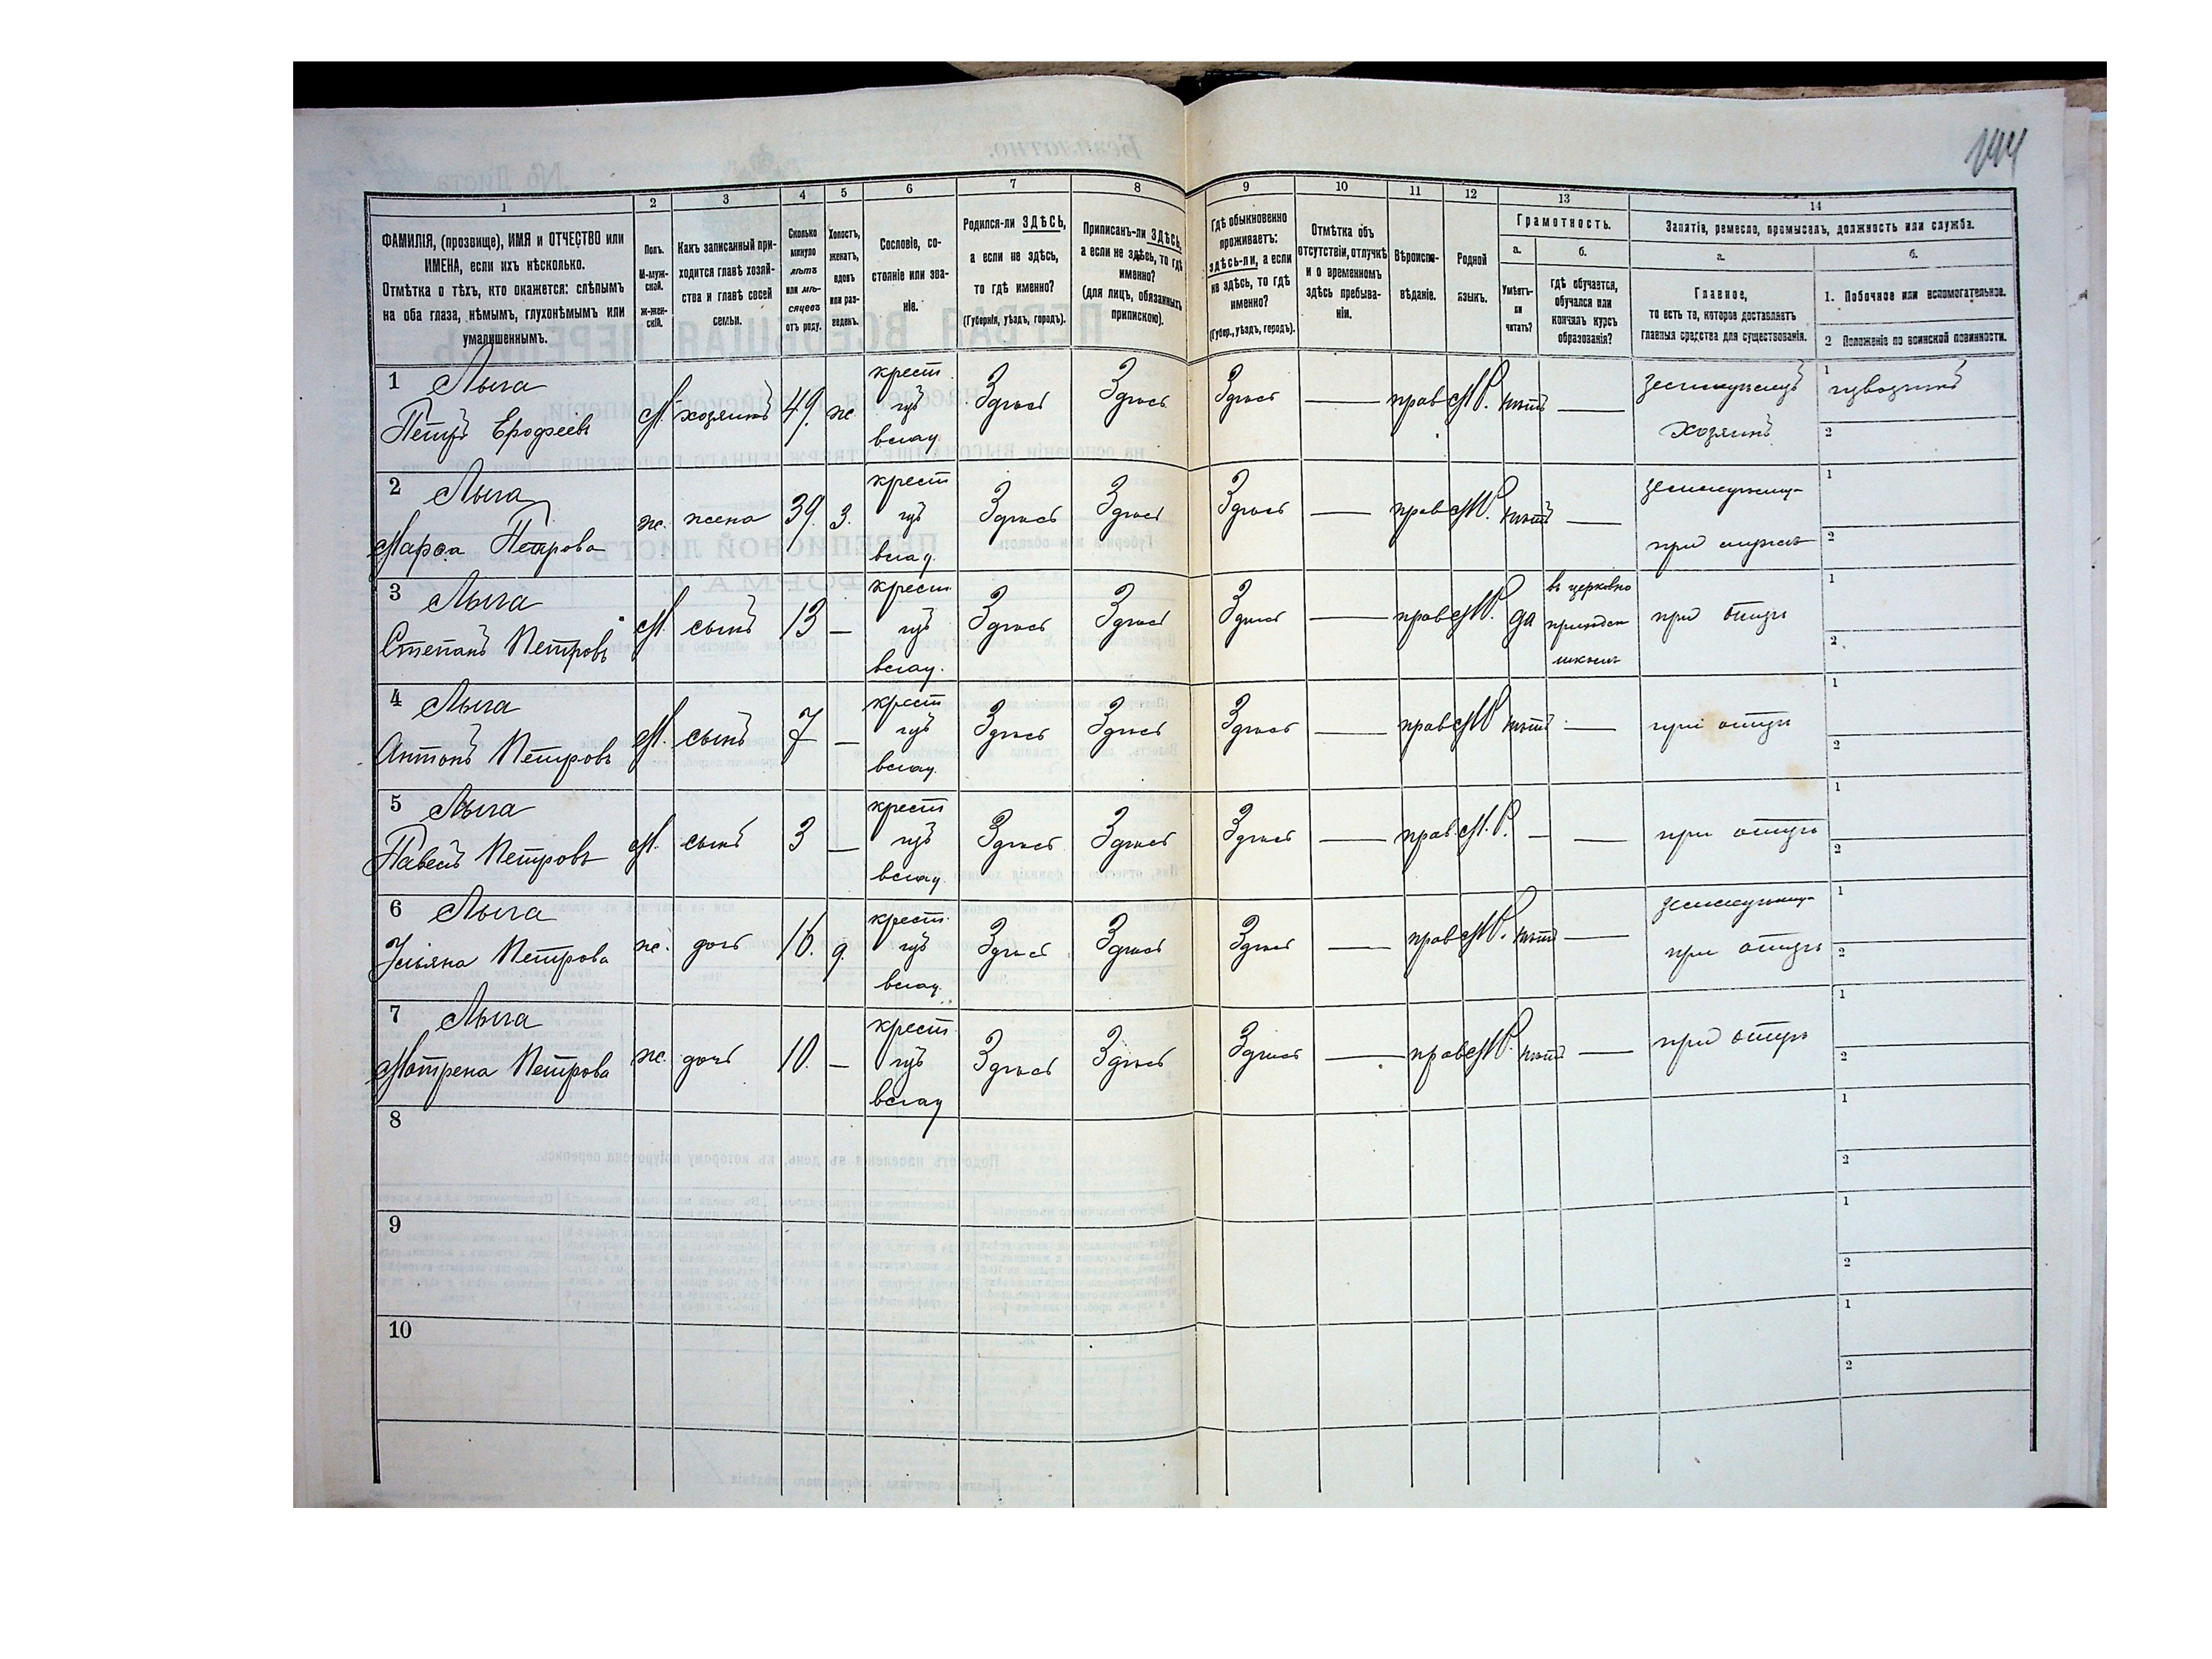 144
1 2 3 4 5 6 7 8 9 10 11 12 13 14
ФАМИЛІЯ, (прозвище), ИМЯ и ОТЧЕСТВО или
ИМЕНА, если ихъ нѣсколько.
Отмѣтка о тѣхъ, кто окажется: слѣпымъ
на оба глаза, нѣмымъ, глухонѣмымъ или
умалишеннымъ.
Полъ.
М-муж-
ской.
Ж-жен-
скій.
Какъ записанный при-
ходится главѣ хозяй-
ства и главѣ своей
семьи.
Сколько
минуло
лѣтъ
или мѣ-
сяцевъ
отъ роду.
Холостъ,
женатъ,
вдовъ
или раз-
веденъ.
Сословіе, со-
стояніе или зва-
ніе.
Родился-ли ЗДѢСЬ,
а если не здѣсь,
то гдѣ именно?
(Губернія, уѣздъ, городъ).
Приписанъ-ли ЗДѢСЬ,
а если не здѣсь, то гдѣ
именно?
(для лицъ, обязанныхъ
припискою).
Гдѣ обыкновенно
проживаетъ:
здѣсь-ли, а если
не здѣсь, то гдѣ
именно?
(Губер., уѣздъ, городъ).
Отмѣтка объ
отсутствіи, отлучкѣ
и о временномъ
здѣсь пребыва-
ніи.
Вѣроиспо-
вѣданіе.
Родной
языкъ.
Грамотность.
а. б.
Умѣетъ-
ли
читать?
гдѣ обучается,
обучался или
кончилъ курсъ
образованія?
Занятіе, ремесло, промыселъ, должность или служба.
а. б.
Главное,
то есть то, которое доставляетъ
главныя средства для существованія.
1. Побочное или вспомогательное.
2 Положеніе по воинской повинности.
1 Лыга
Петръ Ерофеевъ
М. хозяинъ 49. ж.
крест
изъ
влад.
Здѣсь Здѣсь Здѣсь — прав М.Р. нѣтъ —
земледѣлецъ
хозяинъ
1 извозчикъ
2
2 Лыга
Марѳа Петрова
ж. жена 39. З.
крест
изъ
влад.
Здѣсь Здѣсь Здѣсь — прав М.Р. нѣтъ —
при мужѣ
1
2
3 Лыга
Степанъ Петровъ
М. сынъ 13 —
крест
изъ
влад.
Здѣсь Здѣсь Здѣсь — прав М.Р. да
въ церковно
приходск
школѣ
при отцѣ
1
2
4 Лыга
Антонъ Петровъ
М. сынъ 7 —
крест
изъ
влад.
Здѣсь Здѣсь Здѣсь — прав М.Р нѣтъ —
при отцѣ
1
2
5 Лыга
Павелъ Петровъ
М. сынъ 3 —
крест
изъ
влад.
Здѣсь Здѣсь Здѣсь — прав. М.Р. — —
при отцѣ
1
2
6 Лыга
Ульяна Петрова
ж. дочь 16. д.
крест.
изъ
влад.
Здѣсь Здѣсь Здѣсь — прав М.Р. нѣтъ —
при отцѣ
1
2
7 Лыга
Мотрена Петрова
ж. дочь 10. —
крест.
изъ
влад
Здѣсь Здѣсь Здѣсь — прав М.Р. нѣтъ —
при отцѣ
1
2
8
1
2
9
1
2
10
1
2